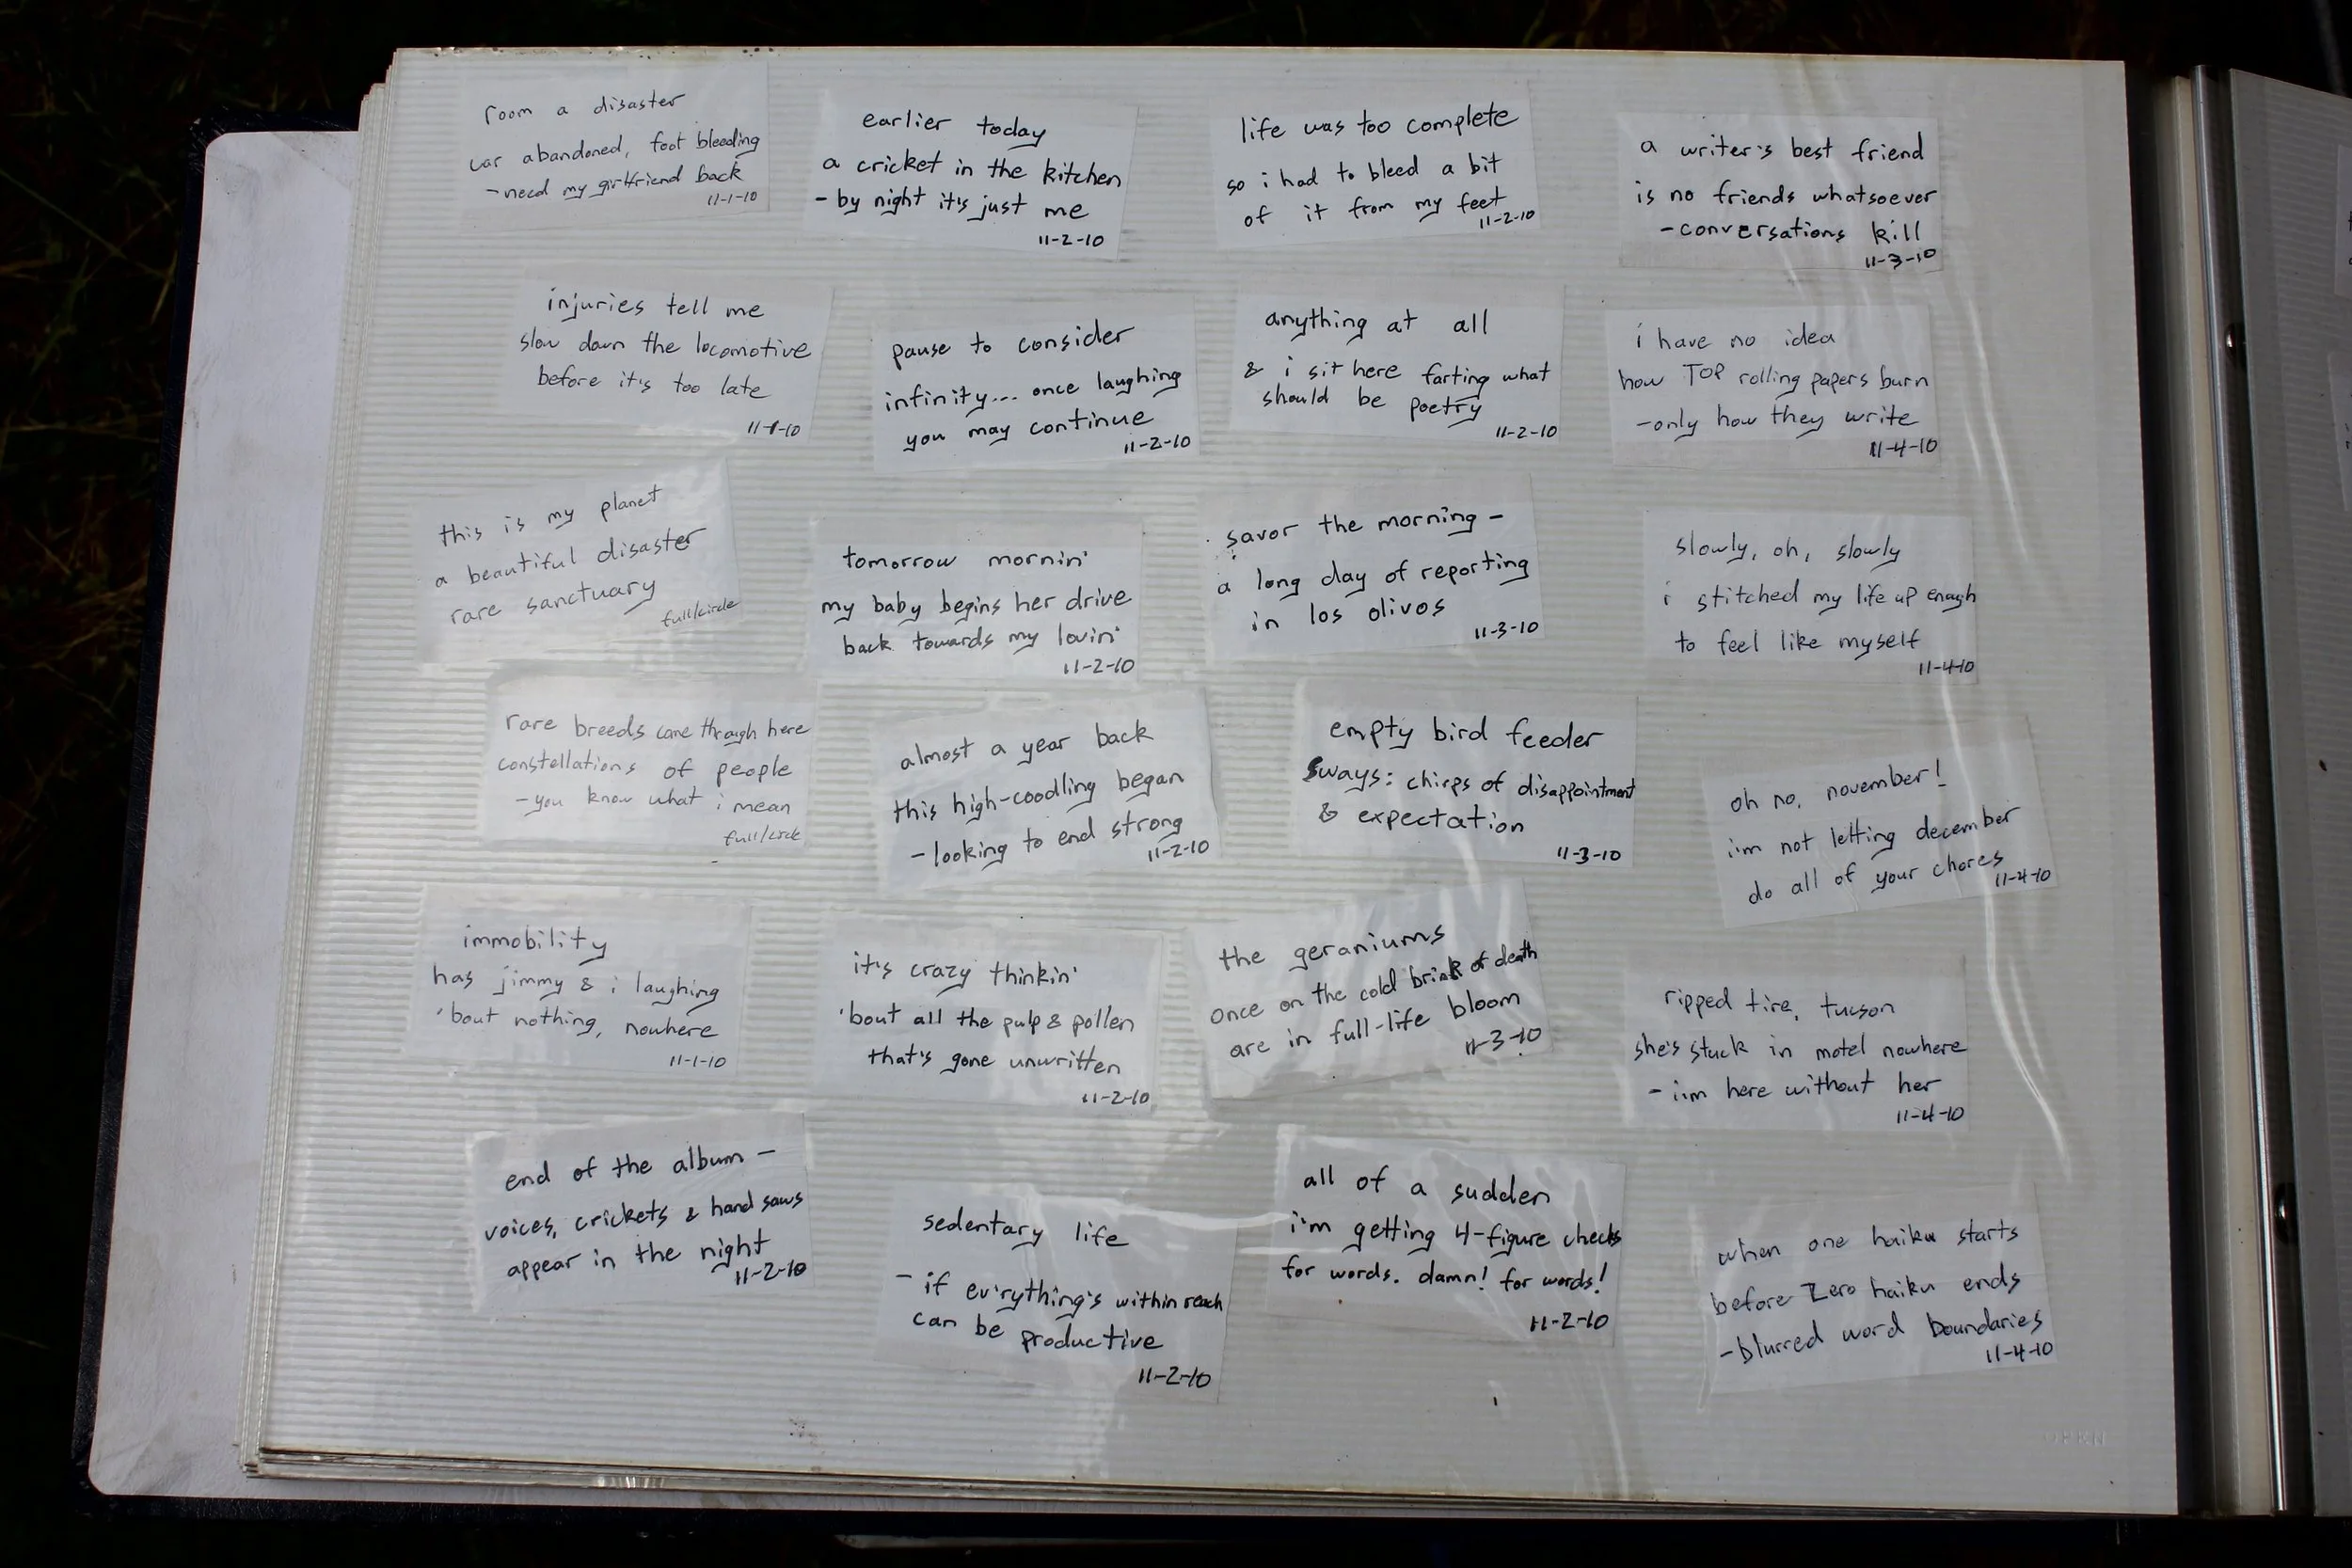 room a disaster
car abandoned, foot bleeding
- need my girlfriend back
11-1-10
injuries tell me
slow down the locomotive
before it's too late
11-1-10
this is my planet
a beautiful disaster
rare sanctuary
full/circle
rare breeds come through here
constellations of people
- you know what i mean
full/circle
immobility
has jimmy & i laughing
'bout nothing, nowhere
11-1-10
end of the album -
voices, crickets & hand saws
appear in the night
11-2-10
earlier today
a cricket in the kitchen
- by night it's just me
11-2-10
pause to consider
infinity... once laughing
you may continue
11-2-10
tomorrow mornin'
my baby begins her drive
back towards my lovin'
11-2-10
almost a year back
this high-coodling began
- looking to end strong
11-2-10
it's crazy thinkin'
'bout all the pulp & pollen
that's gone unwritten
11-2-10
sedentary life
- if ev'rything's within reach
can be productive
11-2-10
life was too complete
so i had to bleed a bit
of it from my feet
11-2-10
anything at all
& i sit here farting what
should be poetry
11-2-10
savor the morning -
a long day of reporting
in los olivos
11-3-10
empty bird feeder
sways: chirps of disappointment
& expectation
11-3-10
the geraniums
once on the cold brink of death
are in full-life bloom
11-3-10
all of a sudden
i'm getting 4-figure checks
for words. damn! for words!
11-2-10
a writer's best friend
is no friends whatsoever
- conversations kill
11-3-10
i have no idea
how TOP rolling papers burn
- only how they write
11-4-10
slowly, oh, slowly
i stitched my life up enough
to feel like myself
11-4-10
oh no, november!
i'm not letting december
do all of your chores
11-4-10
ripped tire, tucson
she's stuck in motel nowhere
- i'm here without her
11-4-10
when one haiku starts
before zero haiku ends
- blurred word boundaries
11-4-10
OPEN